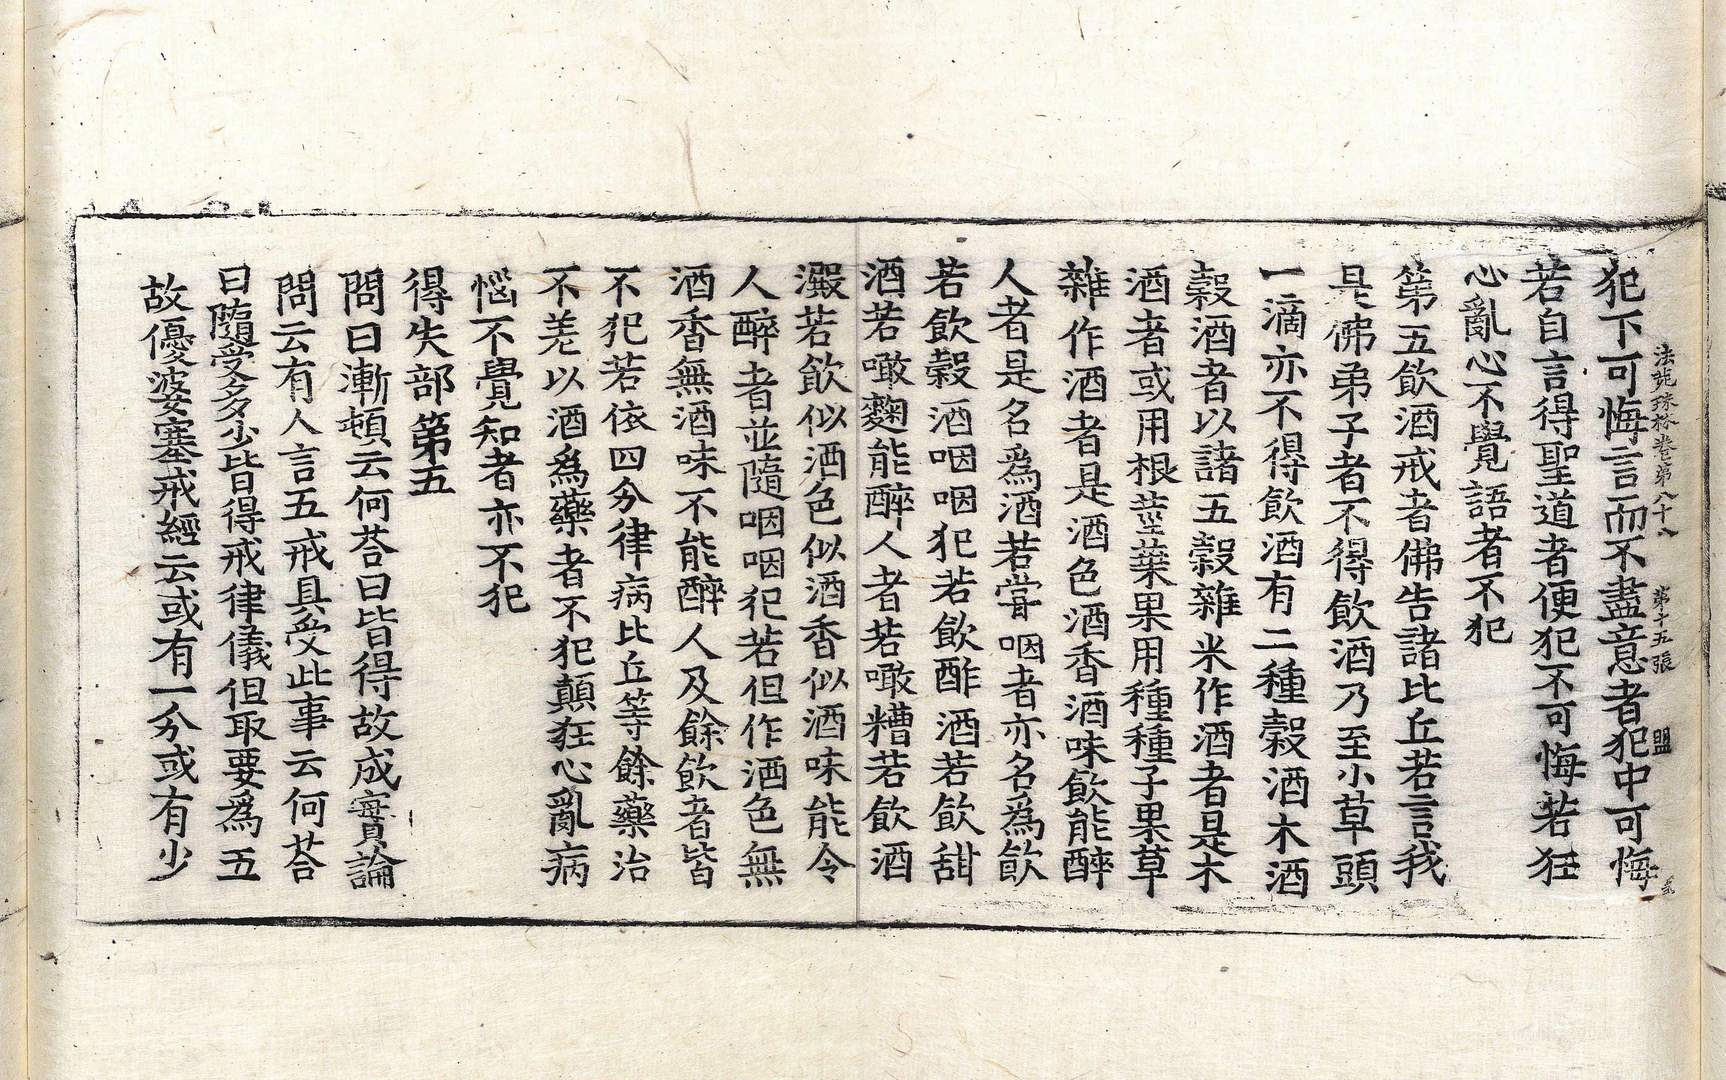 法苑珠林卷第八十八　第十五張　盟
犯下可悔言而不盡意者犯中可悔
若自言得聖道者便犯不可悔若狂
心亂心不覺語者不犯
第五飲酒戒者佛告諸比丘若言我
是佛弟子者不得飲酒乃至小草頭
一滴亦不得飲酒有二種穀酒木酒
穀酒者以諸五穀雜米作酒者是木
酒者或用根莖葉果用種種子果草
雜作酒者是酒色酒香酒味飲能醉
人者是名爲酒若甞咽者亦名爲飲
若飲穀酒咽咽犯若飲酢酒若飲甜
酒若噉麴能醉人者若噉糟若飲酒
澱若飲似酒色似酒香似酒味能令
人醉者並隨咽咽犯若但作酒色無
酒香無酒味不能醉人及餘飲者皆
不犯若依四分律病比丘等餘藥治
不差以酒爲藥者不犯顛狂心亂病
惱不覺知者亦不犯
得失部第五
問曰漸頓云何荅曰皆得故成實論
問云有人言五戒具受此事云何荅
曰隨受多少皆得戒律儀但取要爲五
故優婆塞戒經云或有一分或有少